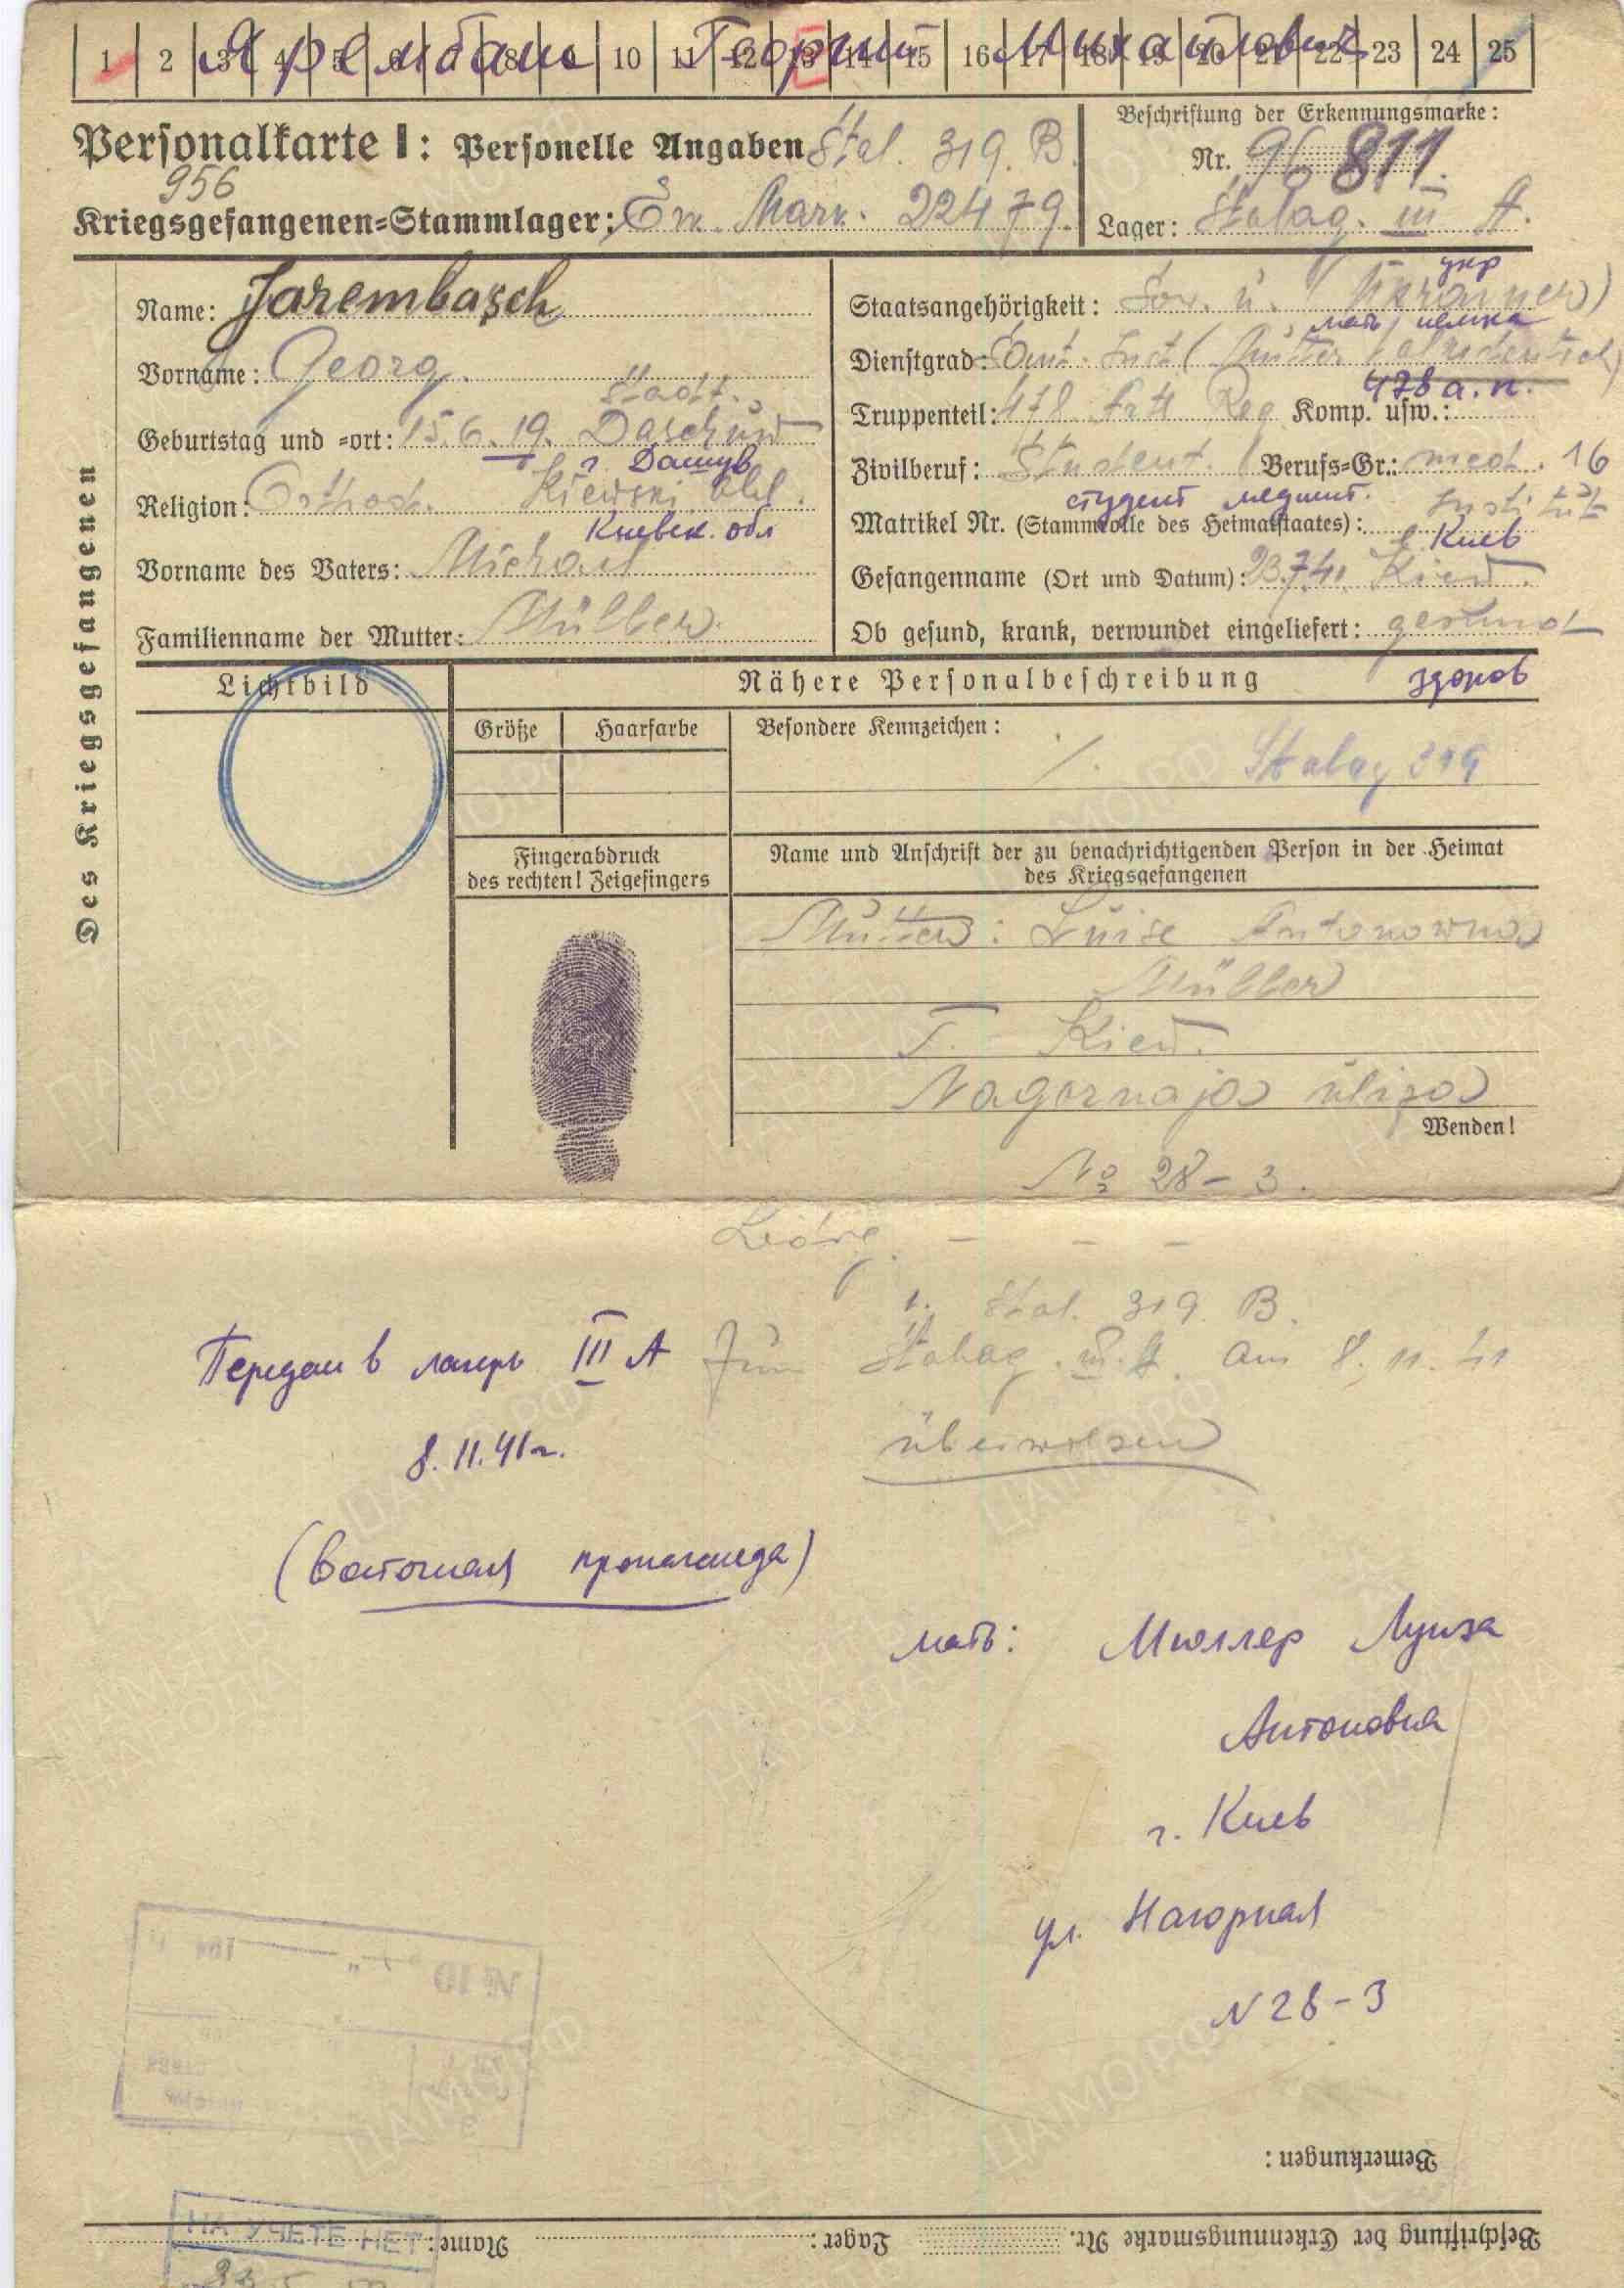 1 2 3 4 5 6 7 8 9 10 11 12 13 14 15 16 17 18 19 20 21 22 23 24 25
Ярембаш Георгий Михайлович
Personalkarte I: Personelle Angaben
Stal. 319. B.
Beschriftung der Erkennungsmarke:
Nr. 96 811.
956
Kriegsgefangenen-Stammlager: Erk. Mark. 22479.
Lager: Stalag. III A.
Des Kriegsgefangenen
Name: Jarembasch
Vorname: Georg.
Stadt.
Geburtstag und -ort: 15.6.19. Daschuw
г. Дашув
Religion: Orthod. Kiewski Obl.
Киевск. обл
Vorname des Vaters: Michail
Familienname der Mutter: Müller
укр
Staatsangehörigkeit: Sow. U. (Ukrainer)
мать немка
Dienstgrad: (Mutter
478 а.п.
Truppenteil: 478 Art Reg Komp. usw.:
Zivilberuf: Student. Berufs-Gr.: med. 16
студент мединст.
Matrikel Nr. (Stammrolle des Heimatstaates): Institut
г. Киев
Gefangenname (Ort und Datum): 23.7.41. Kiew.
Ob gesund, krank, verwundet eingeliefert: gesund
здоров
Lichtbild
Nähere Personalbeschreibung
Größe
Haarfarbe
Besondere Kennzeichen:
Stalag 319
Fingerabdruck
des rechten! Zeigefingers
Name und Anschrift der zu benachrichtigenden Person in der Heimat
des Kriegsgefangenen
Mutter: Luise Antonowna
Müller
Kiew.
Nagornaja uliza
Wenden!
№ 28-3.
1. Stal. 319. B.
Передан в лагерь III А
Zum Stalag. III. A. am 8. 11. 41
8.11.41г.
überwiesen
(Восточная пропаганда)
мать: Мюллер Луиза
Антоновна
г. Киев
ул. Нагорная
N 28-3
№ 10
Bemerkungen:
Beschriftung der Erkennungsmarke Nr. Lager: Name:
НА УЧЕТЕ НЕТ
ПАМЯТЬ НАРОДА
ЦАМО.РФ